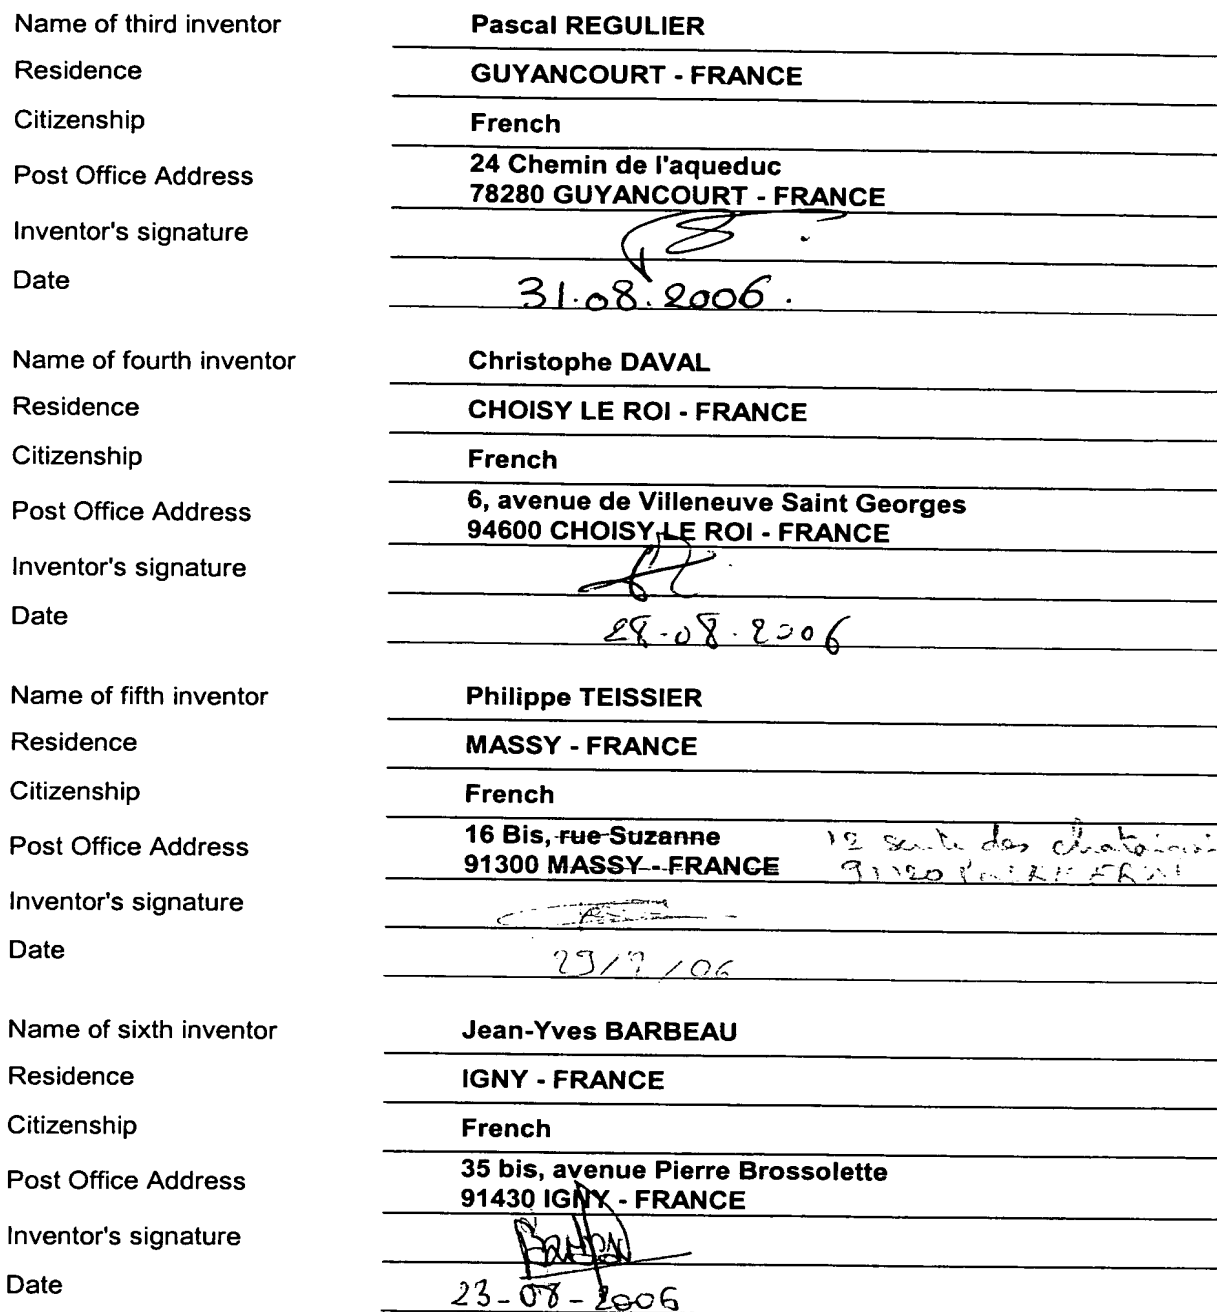 Name of third inventor Pascal REGULIER
Residence GUYANCOURT - FRANCE
Citizenship French
Post Office Address 24 Chemin de l'aqueduc
78280 GUYANCOURT - FRANCE
Inventor's signature
Date 31.08.2006.
Name of fourth inventor Christophe DAVAL
Residence CHOISY LE ROI - FRANCE
Citizenship French
Post Office Address 6, avenue de Villeneuve Saint Georges
94600 CHOISY LE ROI - FRANCE
Inventor's signature
Date 28.08.2006
Name of fifth inventor Philippe TEISSIER
Residence MASSY - FRANCE
Citizenship French
Post Office Address 16 Bis, rue Suzanne 12 sente des
91300 MASSY - FRANCE 91120
Inventor's signature
Date
Name of sixth inventor Jean-Yves BARBEAU
Residence IGNY - FRANCE
Citizenship French
Post Office Address 35 bis, avenue Pierre Brossolette
91430 IGNY - FRANCE
Inventor's signature
Date 23-08-2006